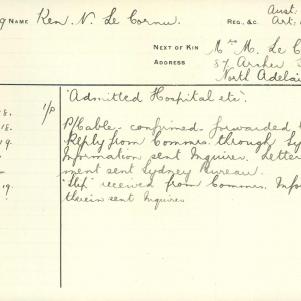 9 NAME Ken. N. Le Cornu. REG. &C. Aust.
Art.
NEXT OF KIN Mrs M. Le C
ADDRESS 37 Archer S
North Adelai
"Admitted Hospital etc".
18. 1/P P/Cable. confirmed. forwarded
18. Reply from Commrs. through Sy
19. Information sent Inquirer. Letter
ment sent Sydney Bureau.
19. "Slip" received from Commrs. Infor
therein sent Inquirer